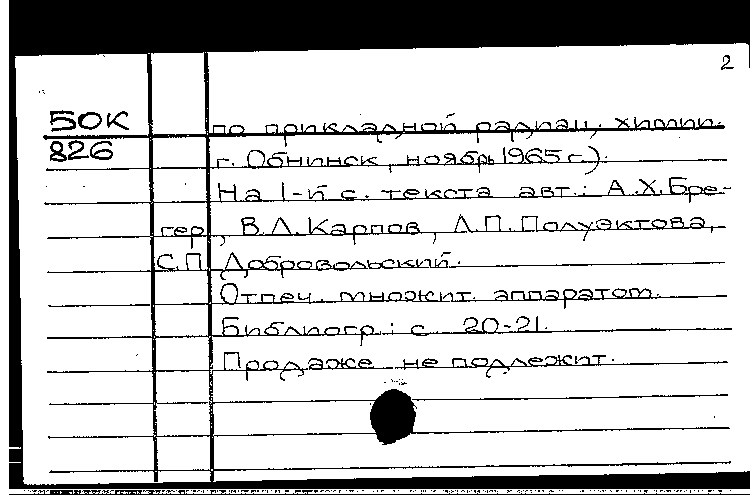 2
БОК
826
по прикладной радиац. химии.
г. Обнинск, ноябрь 1965 г.).
На 1-й с. текста авт.: А.Х.Бре-
гер, В.Л.Карпов, Л.П.Полуэктова,
С.П. Добровольский.
Отпеч. множит. аппаратом.
Библиогр.: с 20-21.
Продаже не подлежит.